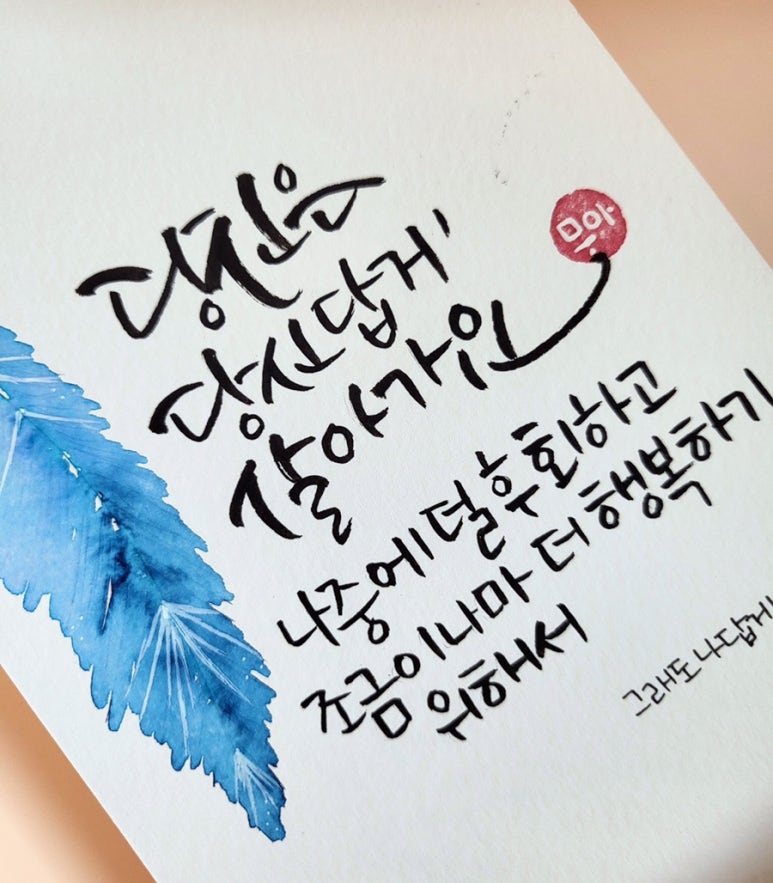 당신은
당신답게
살아가인
나중에 덜 후회하고
조금이나마 더 행복하기
위해서
그래도 나답게